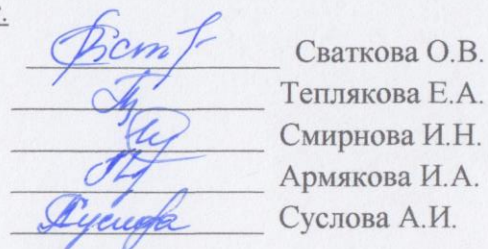 Сваткова О.В.
Теплякова Е.А.
Смирнова И.Н.
Армякова И.А.
Суслова А.И.